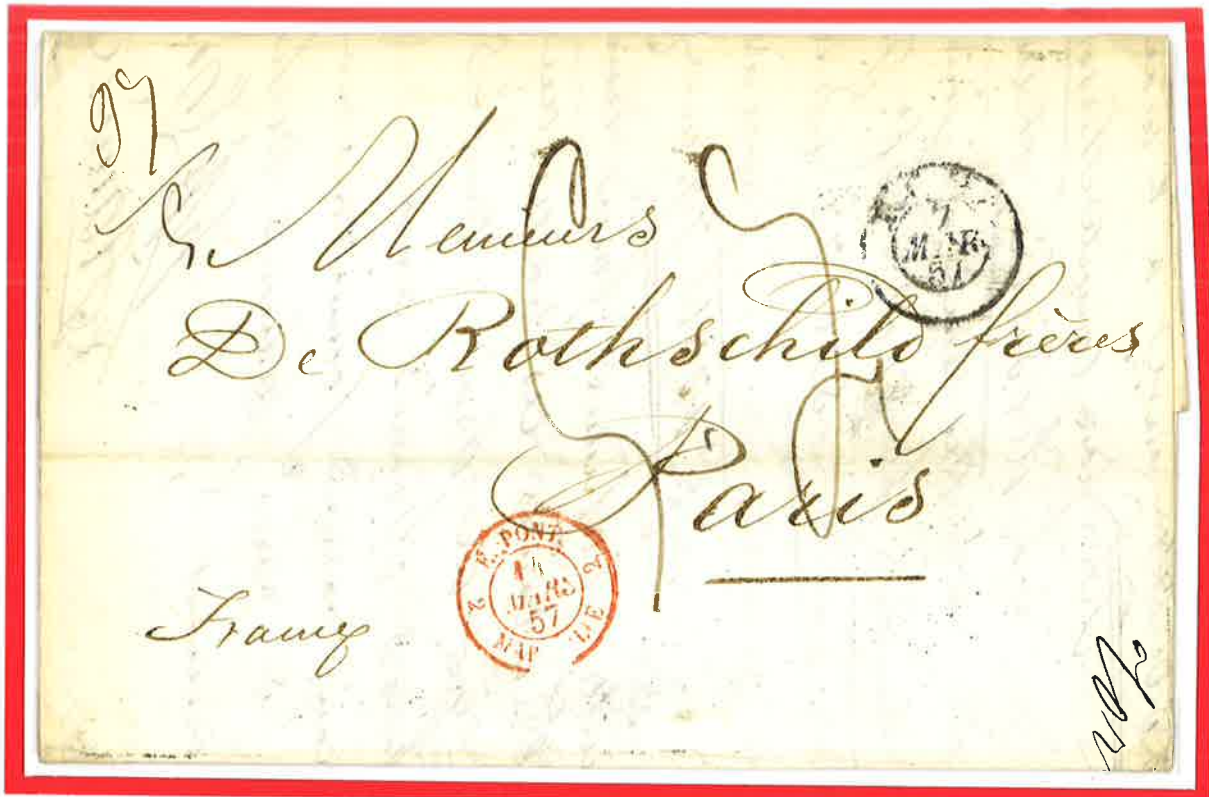 97
Messieurs
De Rothschild frères
Paris
France
7
MAR
57
E. PONT.
2 2
14
MARS
57
MAR LIE